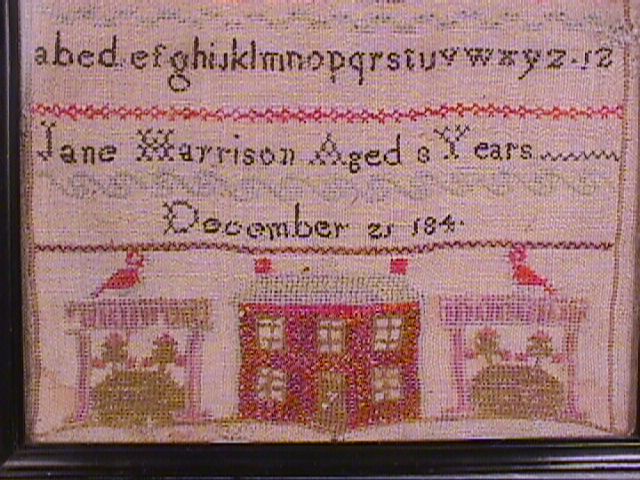 abcdefghijklmnopqrstuvwxyz.12
Jane Harrison Aged 8 Years
December 21 184